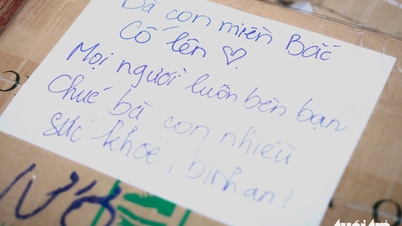 Bà con miền Bắc
Cố lên ♡
Mọi người luôn bên bạn
Chúc bà con nhiều
sức khỏe, bình an!